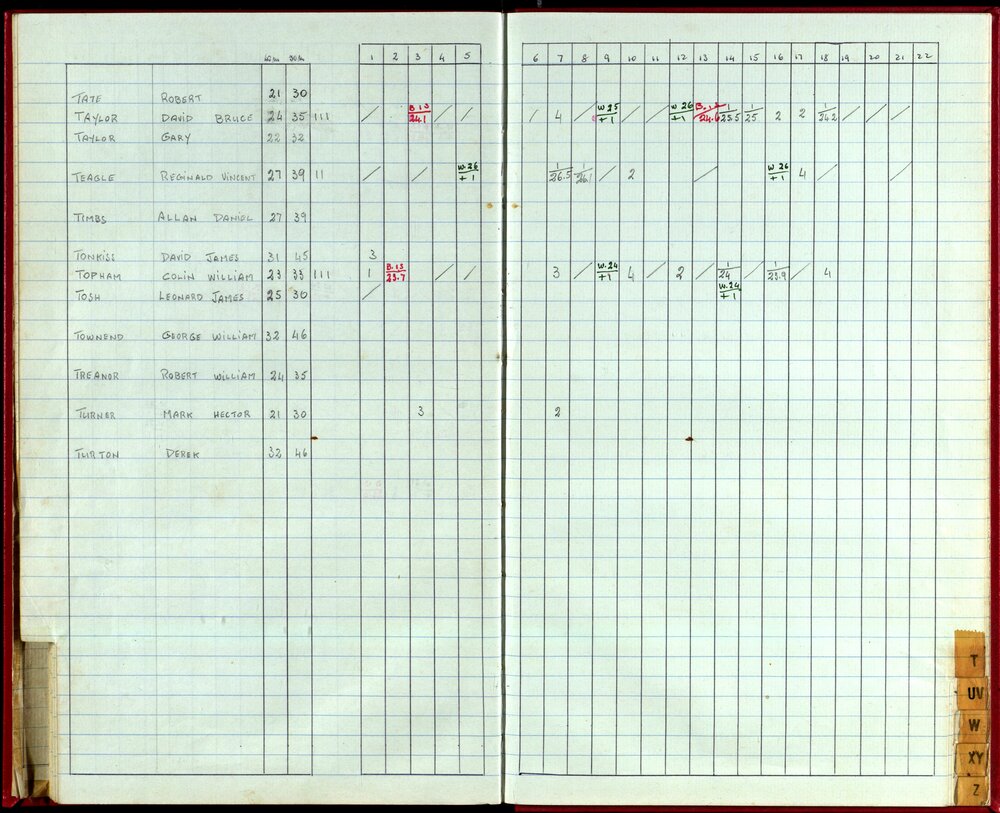 1 2 3 4 5 6 7 8 9 10 11 12 13 14 15 16 17 18 19 20 21 22
TATE ROBERT 21 30
B.13 W 25 W 26 1 1 1
TAYLOR DAVID BRUCE 24 35 111 / 24.1 / / / 4 / +1 / / +1 24.6 23.5 25 2 2 24.2 / / /
TAYLOR GARY 22 32
W.26 1 1 W 26
TEAGLE REGINALD VINCENT 27 39 11 / / +1 26.5 26.1 / 2 / +1 4 / /
TIMBS ALLAN DANIEL 27 39
TONKISS DAVID JAMES 31 45 3
B.13 W.24 1 1
TOPHAM COLIN WILLIAM 23 33 111 1 23.7 / / 3 / +1 4 / 2 / 24 / 23.9 / 4
W.24
TOSH LEONARD JAMES 25 30 / +1
TOWNEND GEORGE WILLIAM 32 46
TREANOR ROBERT WILLIAM 24 35
TURNER MARK HECTOR 21 30 3 2
TURTON DEREK 32 46
T
UV
W
XY
Z